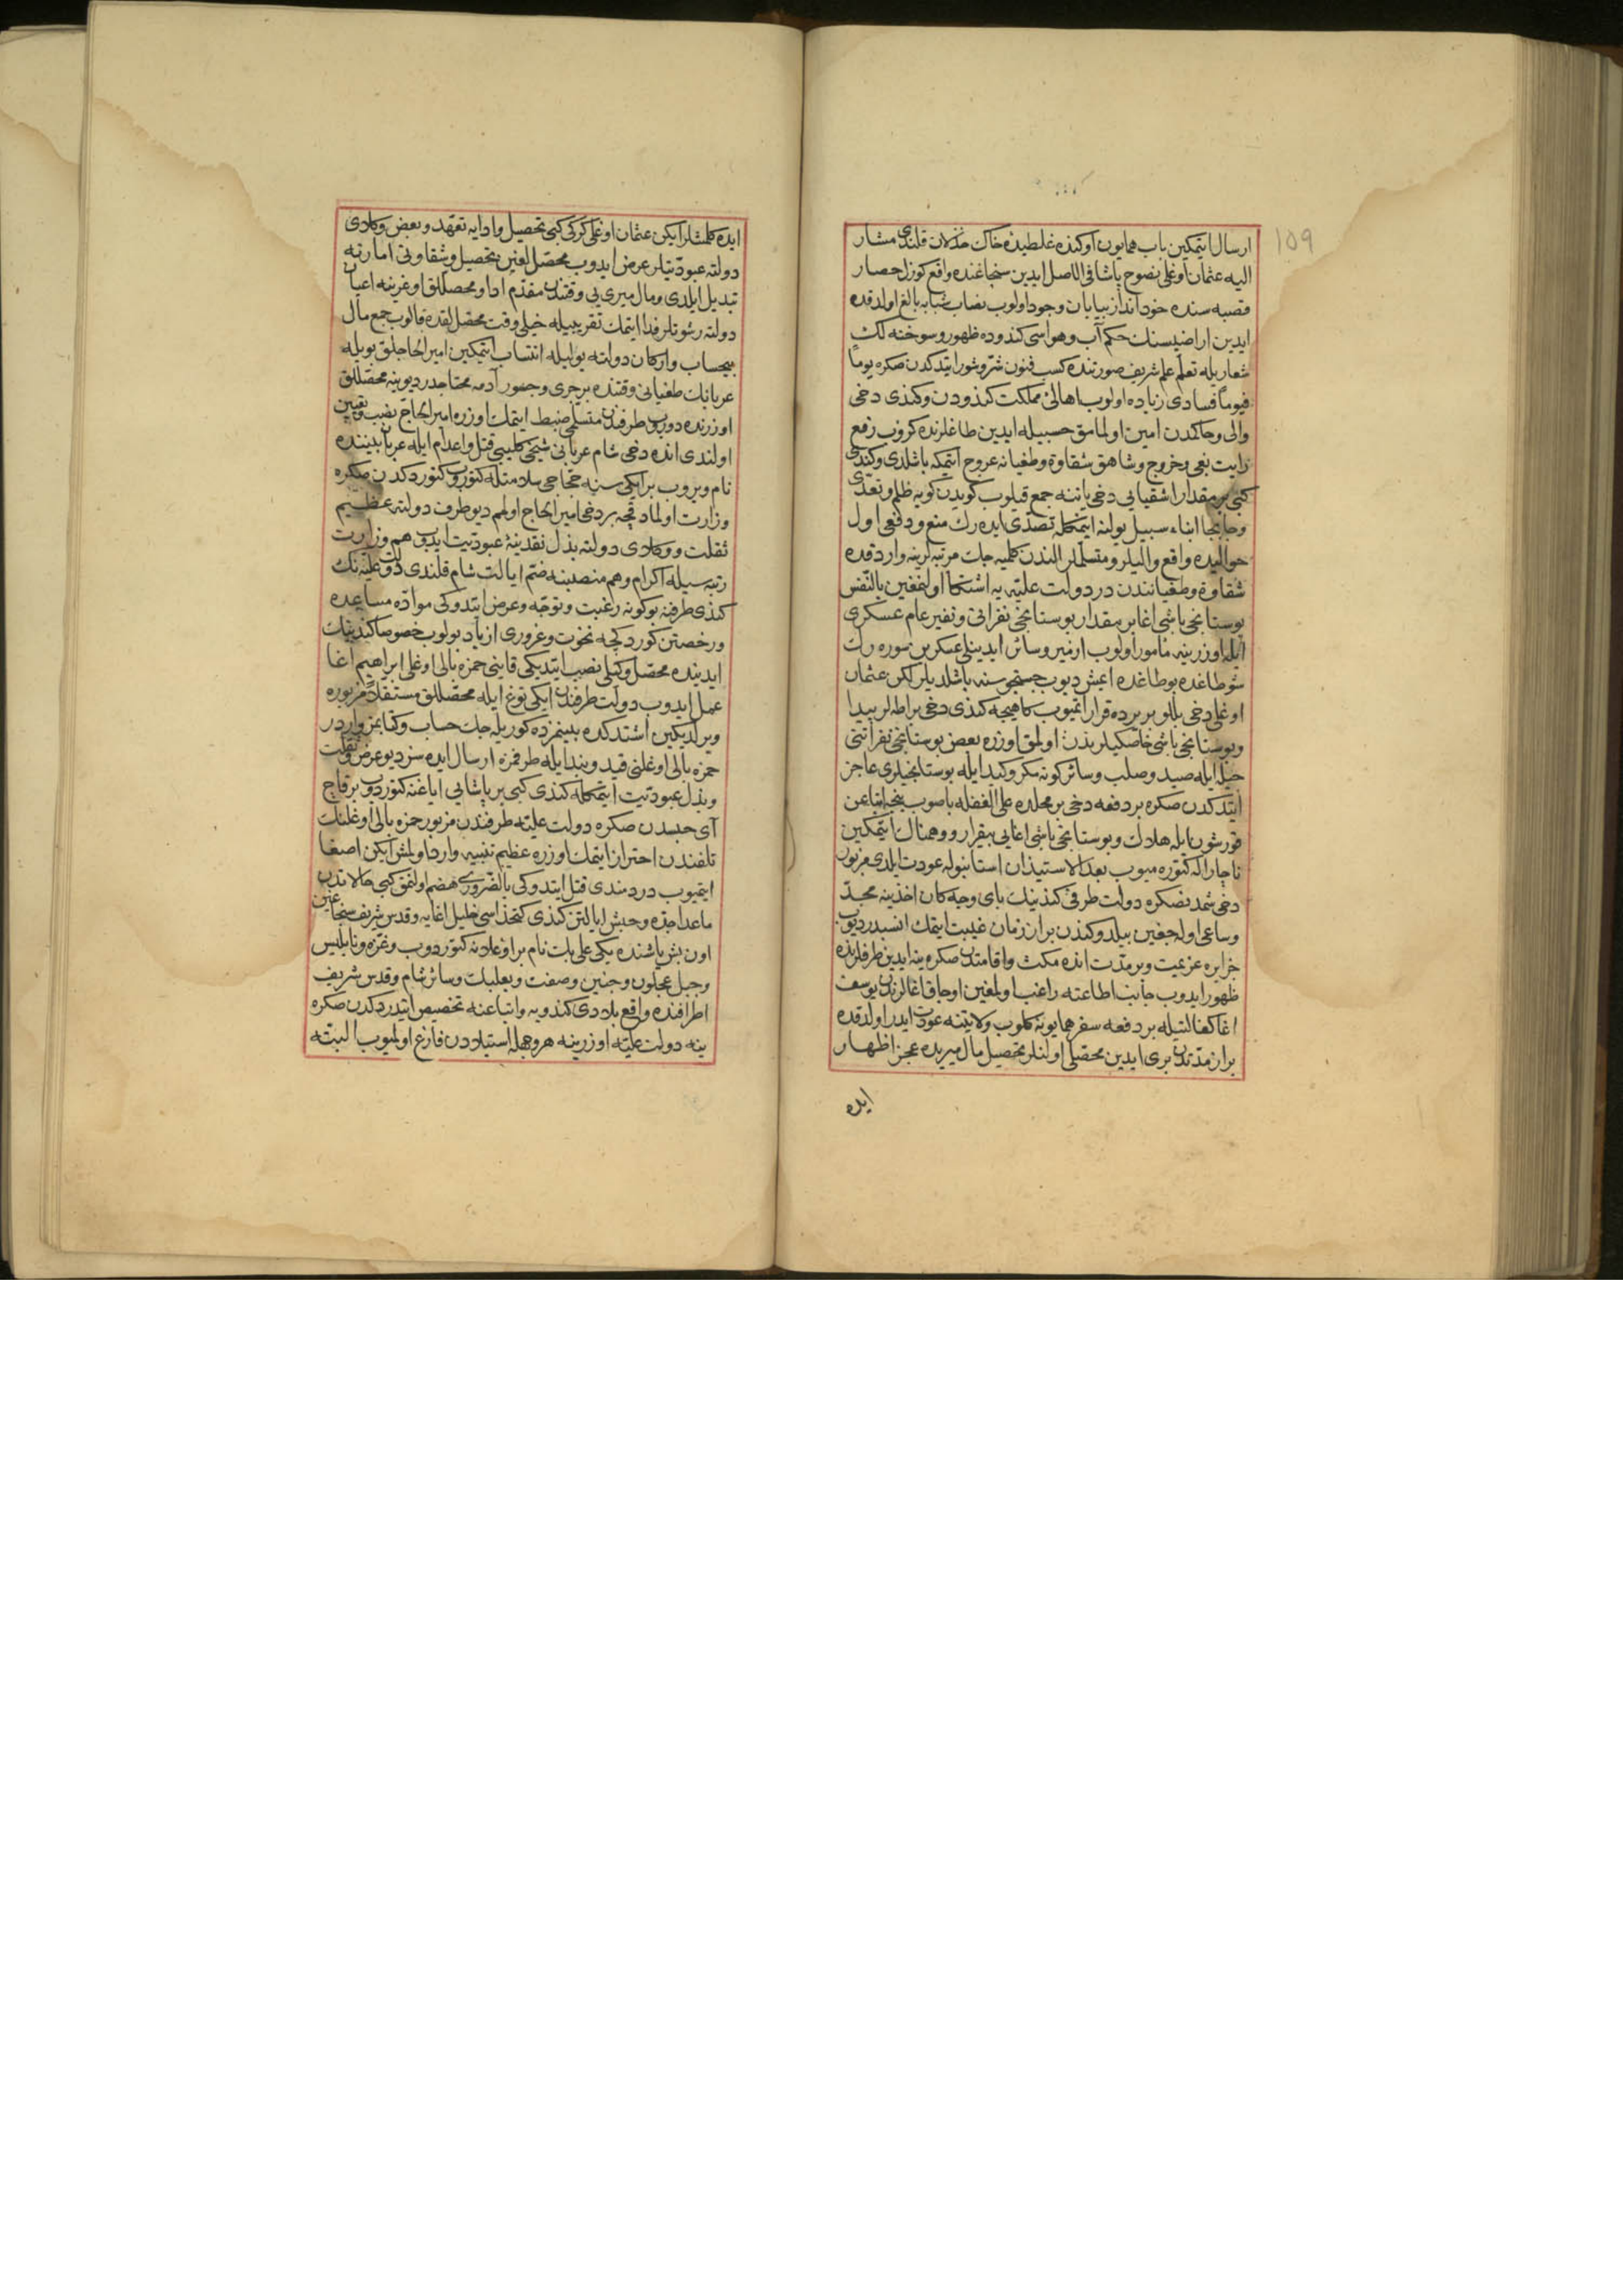 109
ارسال ایتمكین باب همایون اوكنده غلطیدۀ خاك مذلات قلندی مشار
الیه عثمان اوغلی نصوح پاشا فی الاصل ایدین سنجاغنده واقع كوزل حصار
قصبه سنده خود انداز بیابان وجود اولوب نصاب شبابه بالغ اولدقده
ایدین اراضیسنك حكم آب و هواسی كندوده ظهور و سوخته لك
شعاریله تعلم علم شریف صورتنده كسب فنون شر و شور ایتدكدن صكره یوماً
فیوماً فسادی زیاده اولوب اهالئ مملكت كندودن و كندی دخی
والی و حاكمدن امین اولمامق حسبیله ایدین طاغلرنده كزوب رفع
رایت بغی و خروج و شاهق شقاوة و طغیانه عروج ایتمكه باشلدی و كندی
كبی بر مقدار اشقیایی دخی یاننه جمع قیلوب كویدن كویه ظلم و تعدی
و جا بجا ابناء سبیل یولنه اینمكله تصدی ایده رك منع و دفعی اول
حوالیده واقع والیلر و متسلملر الندن كلمیه جك مرتبه لرینه وارد قده
شقاوة و طغیانندن در دولت علیه یه اشتكا اولنمغین بالنفس
بوستانجی باشی اغا بر مقدار بوستانجی نفراتی و نفیر عام عسكری
ایله اوزرینه مأمور اولوب ارنیر و سائر ایدینلی عسكرین سوره رك
شو طاغده بو طاغده ایمش دیوب جستجوسنه باشلدیلر لكن عثمان
اوغلی دخی بللو بر یرده قرار ایتمیوب كاهیجه كندی دخی براطه لر پیدا
و بوستانجی باشی خاصكیلرندن اولمق اوزره بعض بوستانجی نفراتنی
حیله ایله صید و صلب و سائر كونه مكر و كید ایله بوستانجیلری عاجز
ایتدكدن صكره بر دفعه دخی بر محلده علی الغفله باصوب نیجه اتباعن
قورشون ایله هلاك و بوستانجی باشی اغایی بیقرار و وهمناك ایتمكین
ناچار اله كتوره میوب بعد الاستیذان استانبوله عودت ایلدی مزبور
دخی شمدنصكره دولت طرفی كندینك بای وجه كان اخذینه مجد
و ساعی اوله جغین بیلدوكندن بر از زمان غیبت ایتمك انسبدر دیوب
جزایره عزیمت و بر مدت انده مكث و اقامتدن صكره ینه ایدین طرفلرنده
ظهور ایدوب جانب اطاعته راغب اولمغین اوجاق اغالرندن یوسف
اغا كفالتیله بر دفعه سفر همایونه كلوب ولایتنه عودت ایدر اولدقده
بر از مدتدن بری ایدین محصلی اولنلر تحصیل مال میریده عجز اظهار
ایده
ایده كلمشلر ایكن عثمان اوغلی كركی كبی تحصیل و ادایه تعهد و بعض وكلای
دولته عبودیتلر عرض ایدوب محصل لغین تحصیل و شقاوتی امارته
تبدیل ایلدی و مال میری یی وقتندن مقدم ادا و محصللق اوغرینه اعیان
دولته رشوتلر فدا ایتمك تقریبیله خیلی وقت محصللقده قالوب جمع مال
بیحساب و اركان دولته یولیله انتساب ایتمكین امیر الحاجلق بویله
عربانك طغیانی وقتنده بر جری و جسور آدمه محتاجدر دیو ینه محصللق
اوزرنده دوروب طرفندن متسلمی ضبط ایتمك اوزره امیر الحاج نصب و تعیین
اولندی انده دخی شام عربانی شیخی كلیبی قتل و اعدام ایله عربان بیننده
نام ویروب بر ایكی سنه حجاجی سلامتله كتوروب كتوردكدن صكره
وزارت اولمادقجه بر دخی امیر الحاج اولمم دیو طرف دولته عظیم
ثقلت و وكلای دولته بذل نقدینۀ عبودیت ایدوب هم وزارت
رتبه سیله اكرام و هم منصبنه ضم ایالت شام قلندی دولت علیه نك
كندی طرفنه بو كونه رغبت و توجه و عرض ایتدوكی موادّه مساعده
و رخصتن كوردكجه نخوت و غروری ازیاد بولوب خصوصا كندینك
ایدینده محصل وكیلی نصب ایتدیكی قاینی حمزه بالی اوغلی ابراهیم اغا
عمل ایدوب دولت طرفندن ایكی توغ ایله محصللق مستقلاً مزبوره
ویرلدیكین اشتدكده بینمزده كوریله جك حساب و كتابمز واردر
حمزه بالی اوغلنی قید و بند ایله طرفمزه ارسال ایده سز دیو عرض ثقلت
و بذل عبودیت ایتمكله كندی كبی بر پاشایی ایاغنه كتوردوب بر قاچ
آی حبسدن صكره دولت علیه طرفندن مزبور حمزه بالی اوغلنك
تلفندن احتراز ایتمك اوزره عظیم تنبیه وارد اولمش ایكن اصغا
ایتمیوب دردمندی قتل ایتدوكی بالضروری هضم اولنمق كبی حالاتدن
ماعدا جده و حبش ایالتن كندی كتخداسی خلیل اغایه و قدس شریف سنجاغین
اون بش یاشنده یكن علی بك نام بر اوغلانه كتوردوب و غزه و نابلس
و جبل عجلون و جنین و صفت و بعلبك و سائر شام و قدس شریف
اطرافنده واقع بلادی كندویه و اتباعنه تخصیص ایتدردكدن صكره
ینه دولت علیه اوزرینه هر وجهله استیلادن فارغ اولمیوب البته